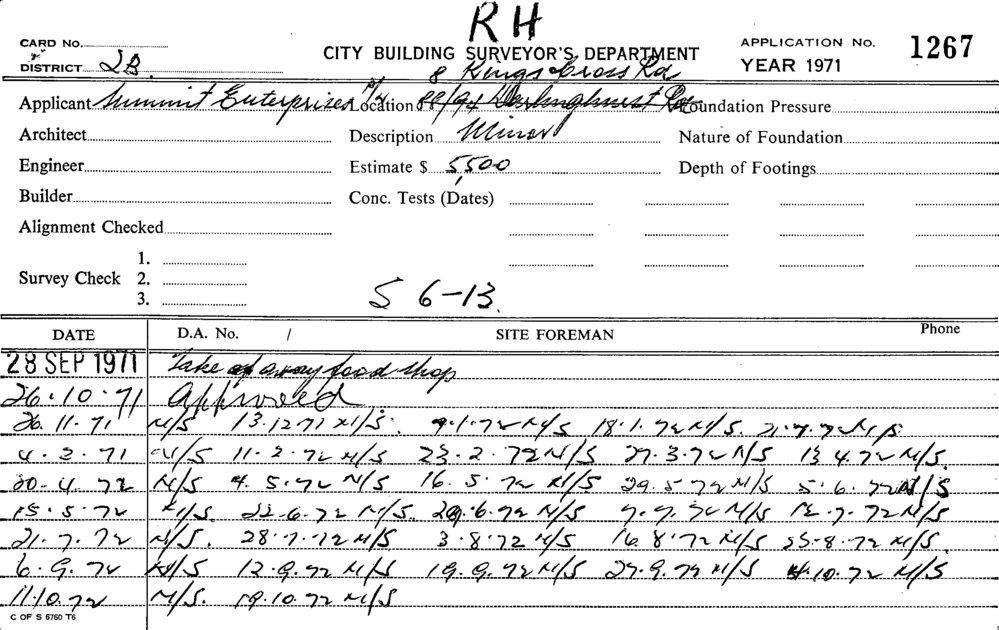 RH
CARD No.
CITY BUILDING SURVEYOR'S DEPARTMENT
APPLICATION No. 1267
& DISTRICT 2B
YEAR 1971
8 Kings Cross Rd
Applicant Summit Enterprises P/L Location 88/94 Darlinghurst Rd Foundation Pressure
Architect Description Minor Nature of Foundation
Engineer Estimate $ 5,500 Depth of Footings
Builder Conc. Tests (Dates)
Alignment Checked
1.
Survey Check 2.
3.
S 6-13
DATE D.A. No. / SITE FOREMAN Phone
28 SEP 1971 Take away food shop
26.10.71 Approved
26.11.71 N/S 13.12.71 N/S. 9.1.72 N/S 18.1.72 N/S. N/S
4.2.71 N/S 11.2.72 N/S 23.2.72 N/S 27.3.72 N/S 13 4.72 N/S.
20.4.72 N/S 4.5.72 N/S 16.5.72 N/S 29.5.72 N/S 5.6.72 N/S
15.5.72 N/S. 22.6.72 N/S. 29.6.72 N/S 7.7.72 N/S 12.7.72 N/S
21.7.72 N/S. 28.7.72 N/S 3.8.72 N/S 16.8.72 N/S 25.8.72 N/S.
6.9.72 N/S 12.9.72 N/S 19.9.72 N/S 27.9.72 N/S 4.10.72 N/S
11.10.72 N/S. 19.10.72 N/S
C OF S 6760 T6